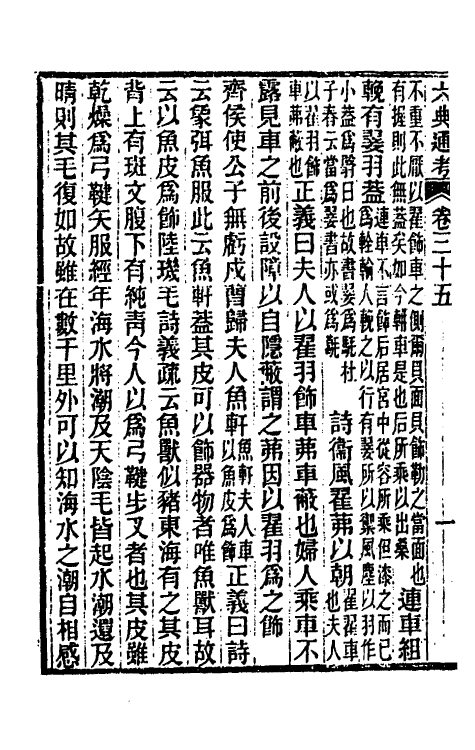 六典通考 卷三十五 一
不重不厭以翟飾車之側爾貝面貝飾勒之當面也有握則此無蓋矣如今輜車是也后所乘以出桑連車組
輓有翣羽葢連車不言飾后居宮中從容所乘但漆之而已為輇輪人輓之以行有翣所以禦風塵以羽作
小葢為翳日也故書翣為駹杜子春云當為翣書亦或為駹詩衞風翟茀以朝翟翟車也夫人
以翟羽飾車茀蔽也正義曰夫人以翟羽飾車茀車蔽也婦人乘車不
露見車之前後設障以自隱蔽謂之茀因以翟羽為之飾
齊侯使公子無虧戍曹歸夫人魚軒魚軒夫人車以魚皮為飾正義曰詩
云象弭魚服此云魚軒葢其皮可以飾器物者唯魚獸耳故
云以魚皮為飾陸璣毛詩義疏云魚獸似豬東海有之其皮
背上有斑文腹下有純青今人以為弓鞬步叉者也其皮雖
乾燥為弓鞬矢服經年海水將潮及天陰毛皆起水潮還及
晴則其毛復如故雖在數千里外可以知海水之潮自相感